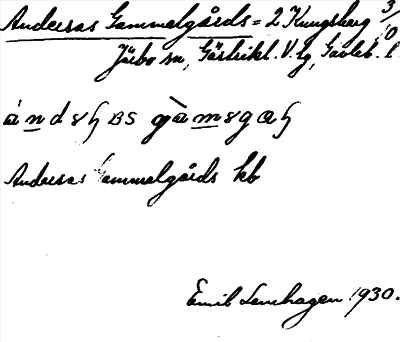 Anderas Gammelgårds = 2 Kungsberg 3/10
Järbo sn, Gästrikl. V. tg, Gävleb. l.
Anderas Gammelgårds kb
Emil Lenhagen 1930.